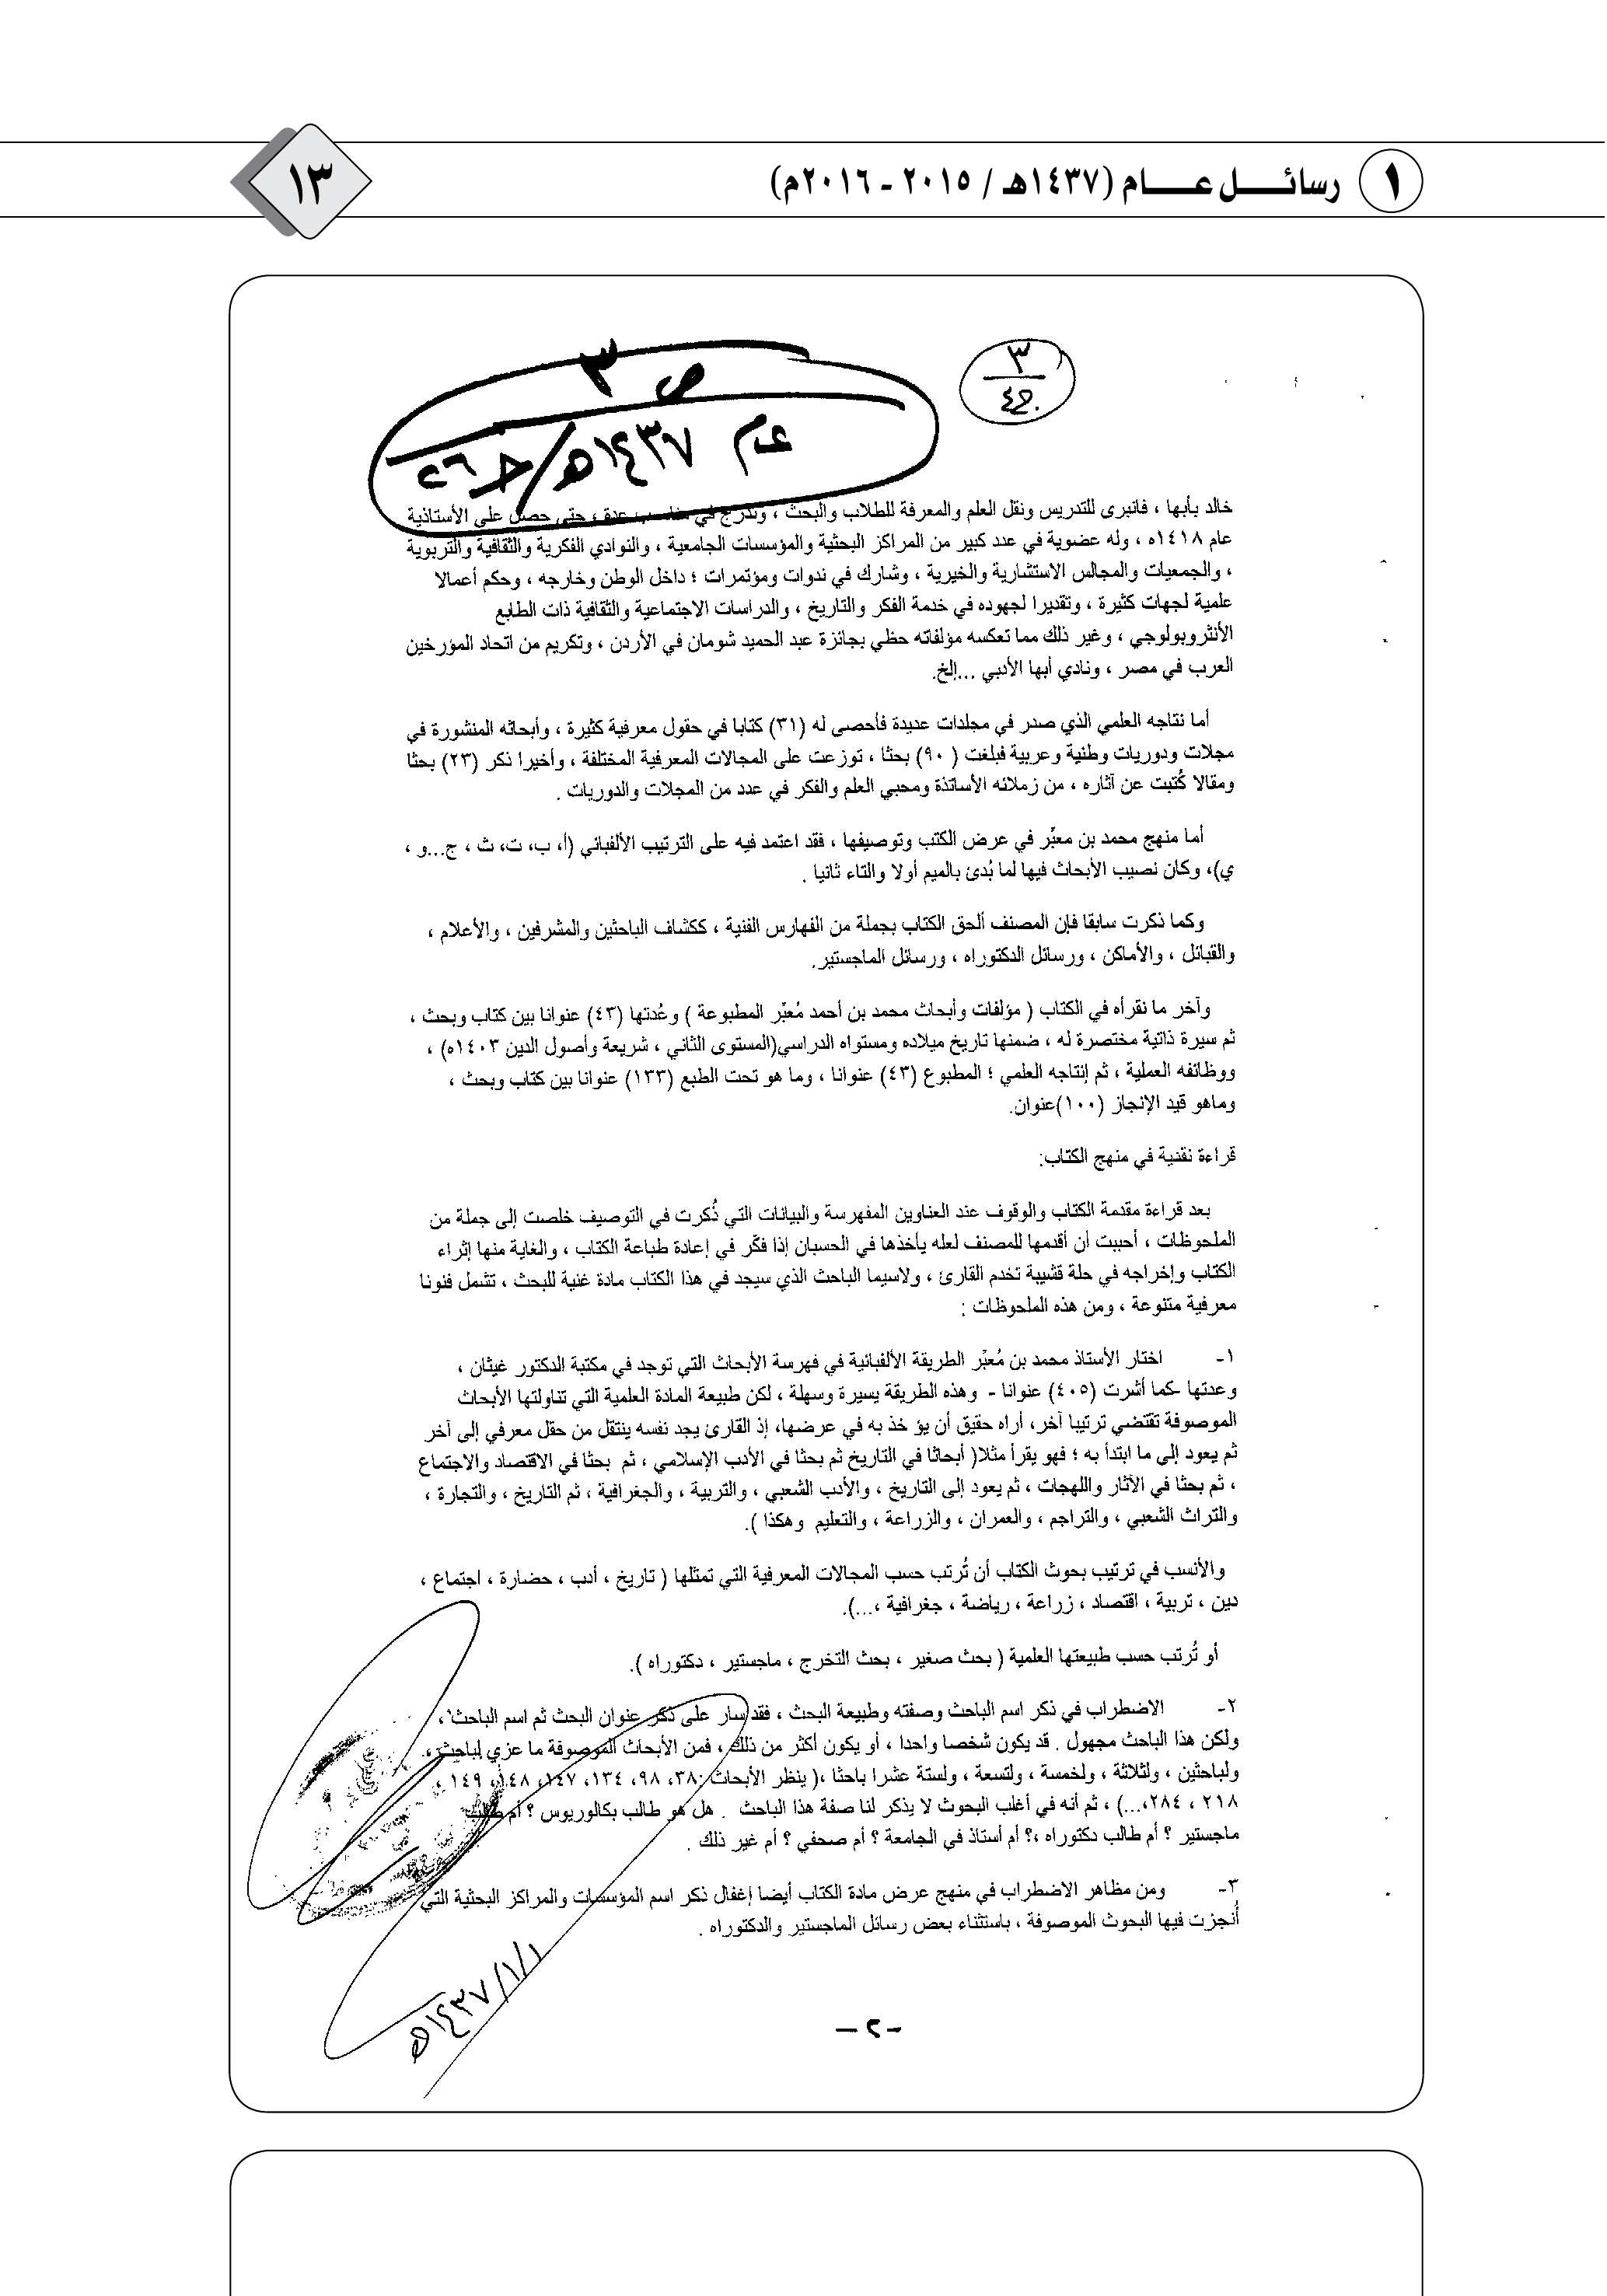 ١ رسائل عام (١٤٣٧هـ / ٢٠١٥ - ٢٠١٦م) ١٣
٣
ص ٣
عام ١٤٣٧هـ/
خالد بأبها ، فانبرى للتدريس ونقل العلم والمعرفة للطلاب والبحث ، وتدرج في مناصب عدة ، حتى حصل على الأستاذية
عام ١٤١٨ه ، وله عضوية في عدد كبير من المراكز البحثية والمؤسسات الجامعية ، والنوادي الفكرية والثقافية والتربوية
، والجمعيات والمجالس الاستشارية والخيرية ، وشارك في ندوات ومؤتمرات ؛ داخل الوطن وخارجه ، وحكم أعمالا
علمية لجهات كثيرة ، وتقديرا لجهوده في خدمة الفكر والتاريخ ، والدراسات الاجتماعية والثقافية ذات الطابع
الأنثروبولوجي ، وغير ذلك مما تعكسه مؤلفاته حظي بجائزة عبد الحميد شومان في الأردن ، وتكريم من اتحاد المؤرخين
العرب في مصر ، ونادي أبها الأدبي ...إلخ.
أما نتاجه العلمي الذي صدر في مجلدات عديدة فأحصى له (٣١) كتابا في حقول معرفية كثيرة ، وأبحاثه المنشورة في
مجلات ودوريات وطنية وعربية فبلغت ( ٩٠) بحثا ، توزعت على المجالات المعرفية المختلفة ، وأخيرا ذكر (٢٣) بحثا
ومقالا كُتبت عن آثاره ، من زملائه الأساتذة ومحبي العلم والفكر في عدد من المجلات والدوريات .
أما منهج محمد بن معبِّر في عرض الكتب وتوصيفها ، فقد اعتمد فيه على الترتيب الألفبائي (أ، ب، ت، ث ، ج...و ،
ي)، وكان نصيب الأبحاث فيها لما بُدئ بالميم أولا والتاء ثانيا .
وكما ذكرت سابقا فإن المصنف ألحق الكتاب بجملة من الفهارس الفنية ، ككشاف الباحثين والمشرفين ، والأعلام ،
والقبائل ، والأماكن ، ورسائل الدكتوراه ، ورسائل الماجستير.
وآخر ما نقرأه في الكتاب ( مؤلفات وأبحاث محمد بن أحمد مُعبِّر المطبوعة ) وعُدتها (٤٣) عنوانا بين كتاب وبحث ،
ثم سيرة ذاتية مختصرة له ، ضمنها تاريخ ميلاده ومستواه الدراسي(المستوى الثاني ، شريعة وأصول الدين ١٤٠٣ه) ،
ووظائفه العملية ، ثم إنتاجه العلمي ؛ المطبوع (٤٣) عنوانا ، وما هو تحت الطبع (١٣٣) عنوانا بين كتاب وبحث ،
وماهو قيد الإنجاز (١٠٠)عنوان.
قراءة نقدية في منهج الكتاب:
بعد قراءة مقدمة الكتاب والوقوف عند العناوين المفهرسة والبيانات التي ذُكرت في التوصيف خلصت إلى جملة من
الملحوظات ، أحببت أن أقدمها للمصنف لعله يأخذها في الحسبان إذا فكّر في إعادة طباعة الكتاب ، والغاية منها إثراء
الكتاب وإخراجه في حلة قشيبة تخدم القارئ ، ولاسيما الباحث الذي سيجد في هذا الكتاب مادة غنية للبحث ، تشمل فنونا
معرفية متنوعة ، ومن هذه الملحوظات :
١- اختار الأستاذ محمد بن مُعبِّر الطريقة الألفبائية في فهرسة الأبحاث التي توجد في مكتبة الدكتور غيثان ،
وعدتها -كما أشرت (٤٠٥) عنوانا - وهذه الطريقة يسيرة وسهلة ، لكن طبيعة المادة العلمية التي تناولتها الأبحاث
الموصوفة تقتضي ترتيبا آخر، أراه حقيق أن يؤ خذ به في عرضها، إذ القارئ يجد نفسه ينتقل من حقل معرفي إلى آخر
ثم يعود إلى ما ابتدأ به ؛ فهو يقرأ مثلا( أبحاثا في التاريخ ثم بحثا في الأدب الإسلامي ، ثم بحثا في الاقتصاد والاجتماع
، ثم بحثا في الآثار واللهجات ، ثم يعود إلى التاريخ ، والأدب الشعبي ، والتربية ، والجغرافية ، ثم التاريخ ، والتجارة ،
والتراث الشعبي ، والتراجم ، والعمران ، والزراعة ، والتعليم وهكذا ).
والأنسب في ترتيب بحوث الكتاب أن تُرتب حسب المجالات المعرفية التي تمثلها ( تاريخ ، أدب ، حضارة ، اجتماع ،
دين ، تربية ، اقتصاد ، زراعة ، رياضة ، جغرافية ،...).
أو تُرتب حسب طبيعتها العلمية ( بحث صغير ، بحث التخرج ، ماجستير ، دكتوراه ).
٢- الاضطراب في ذكر اسم الباحث وصفته وطبيعة البحث ، فقد سار على ذكر عنوان البحث ثم اسم الباحث ،
ولكن هذا الباحث مجهول . قد يكون شخصا واحدا ، أو يكون أكثر من ذلك ، فمن الأبحاث الموصوفة ما عزي لباحث ،
ولباحثين ، ولثلاثة ، ولخمسة ، ولتسعة ، ولستة عشرا باحثا ،( ينظر الأبحاث :٣٨، ٩٨، ١٣٤، ١٤٧، ١٤٨، ١٤٩ ،
٢١٨ ، ٢٨٤،...) ، ثم أنه في أغلب البحوث لا يذكر لنا صفة هذا الباحث . هل هو طالب بكالوريوس ؟ أم طالب
ماجستير ؟ أم طالب دكتوراه ،؟ أم أستاذ في الجامعة ؟ أم صحفي ؟ أم غير ذلك .
٣- ومن مظاهر الاضطراب في منهج عرض مادة الكتاب أيضا إغفال ذكر اسم المؤسسات والمراكز البحثية التي
أُنجزت فيها البحوث الموصوفة ، باستثناء بعض رسائل الماجستير والدكتوراه .
١٤٣٧/١/١ه
- ٢ -